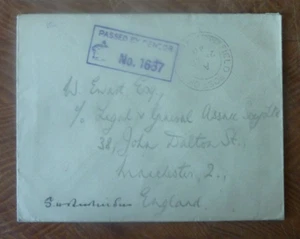 PASSED BY CENSOR
No. 1637
W. Ewart Esq.,
c/o Legal & General Assce
38, John Dalton St.,
Manchester, 2.,
England.